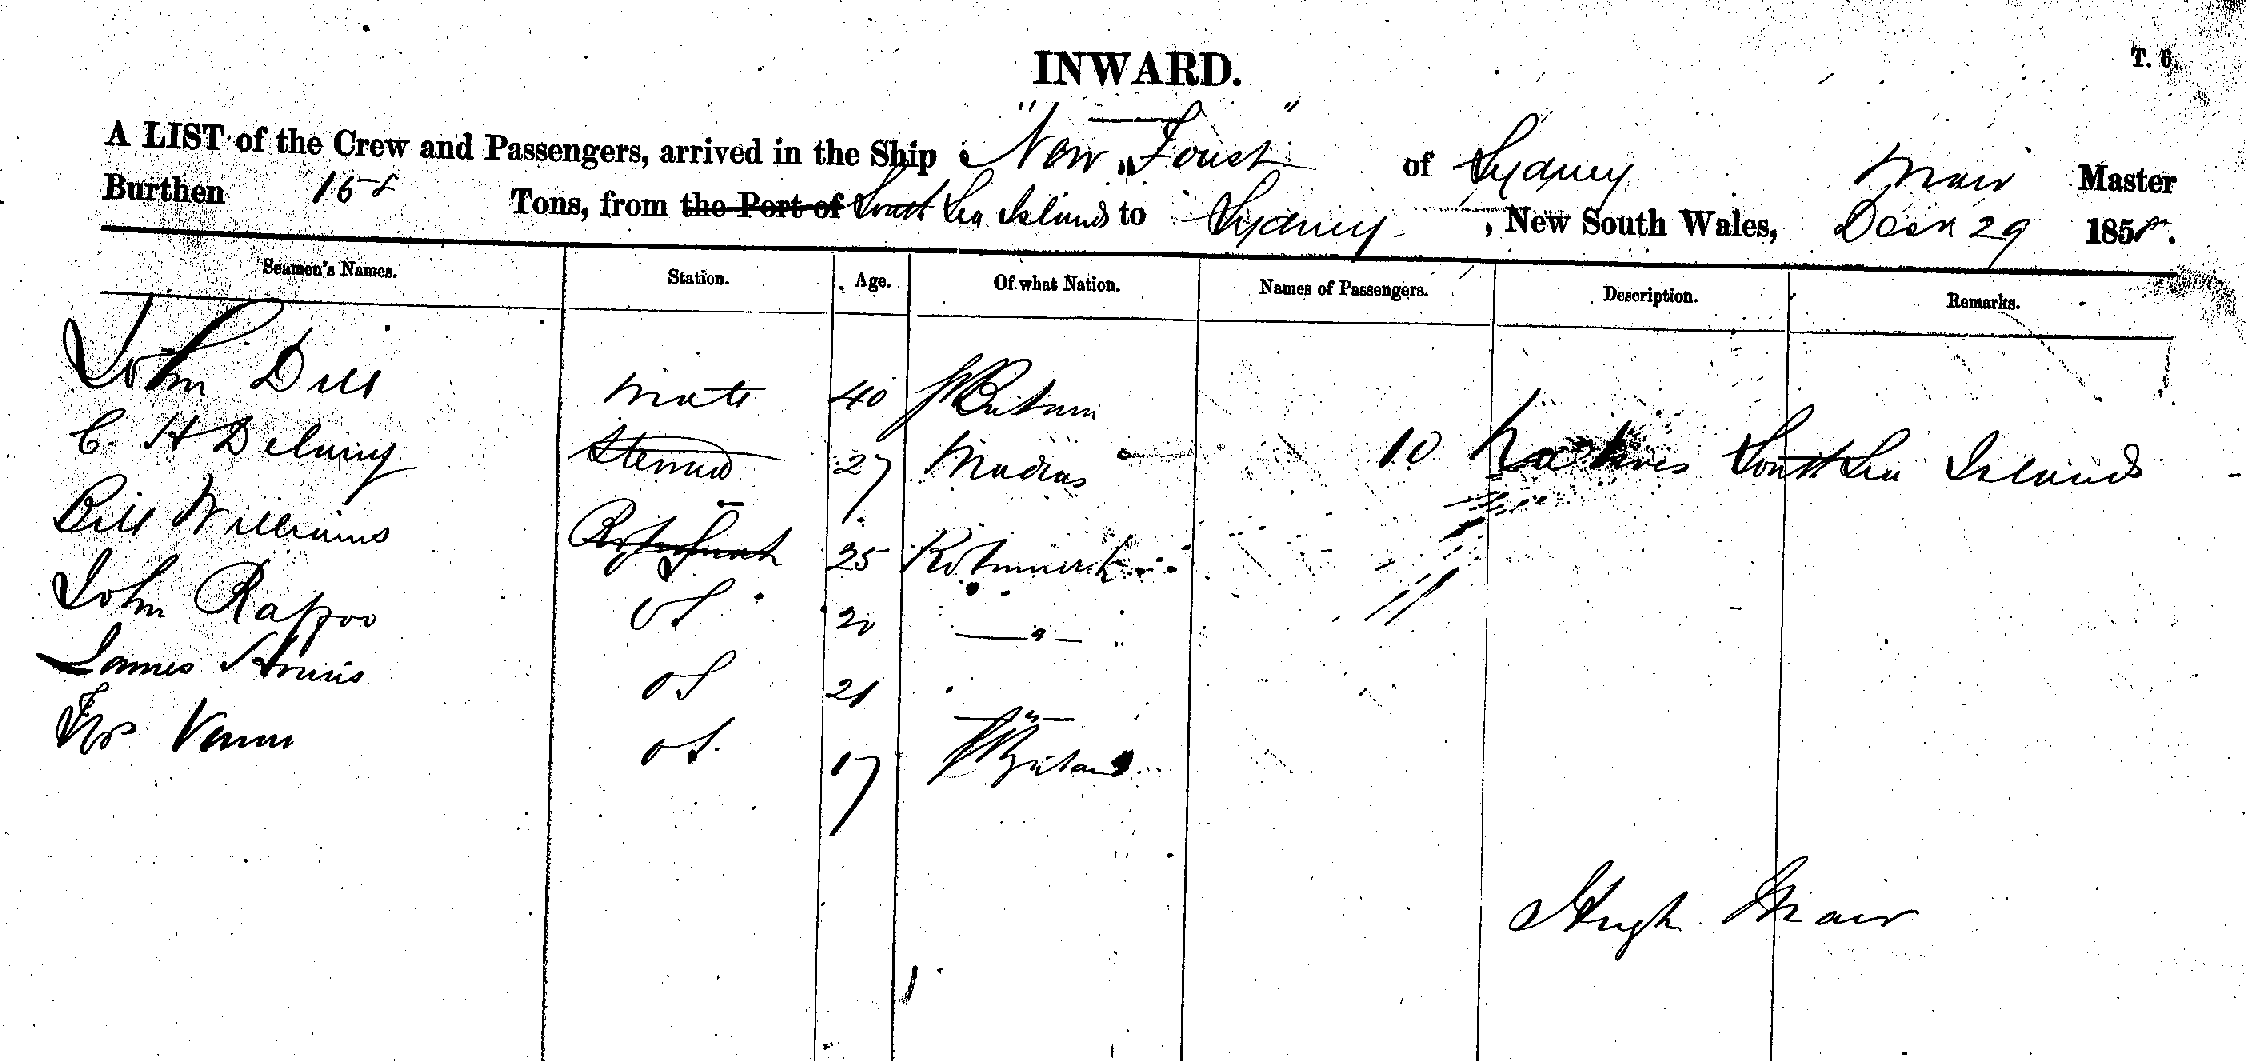 INWARD.
T. 6.
A LIST of the Crew and Passengers, arrived in the Ship "New Forest" of Sydney Mair Master
Burthen 158 Tons, from the Port of South Sea Islands to Sydney, New South Wales, Decr 29 1858.
Seamen's Names. Station. Age. Of what Nation. Names of Passengers. Description. Remarks.
John Dill Mate 40
C. H Delany Steward 27 Madras 10 Natives South Sea Islands
Bill Williams 25
John Rapoo OS 20
James OS 21
Vann OS. 17
Hugh Mair